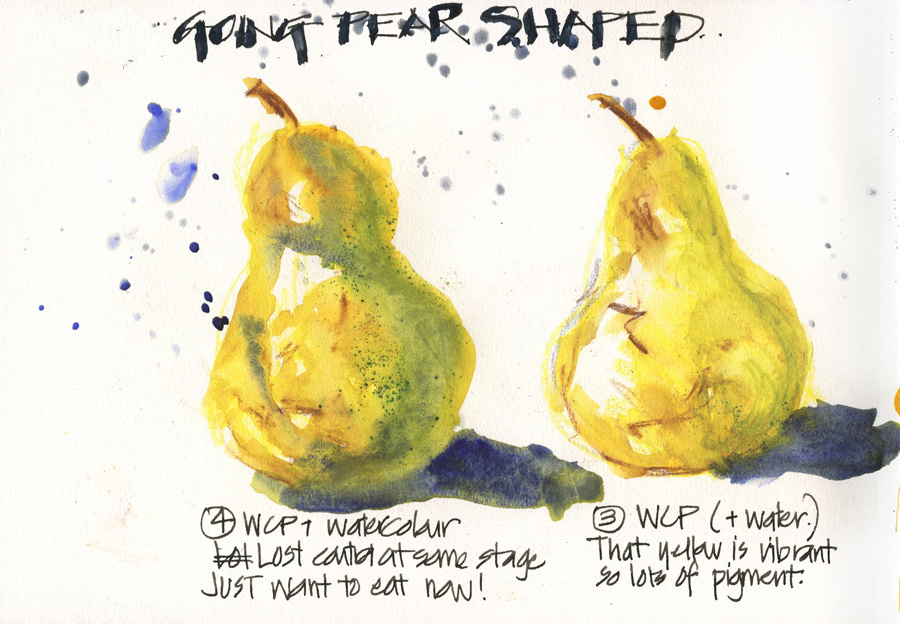 GOING PEAR SHAPED..
④ WCP + watercolour
Lost control at some stage
JUST want to eat now!
③ WCP (+ water.)
That yellow is vibrant
so lots of pigment.